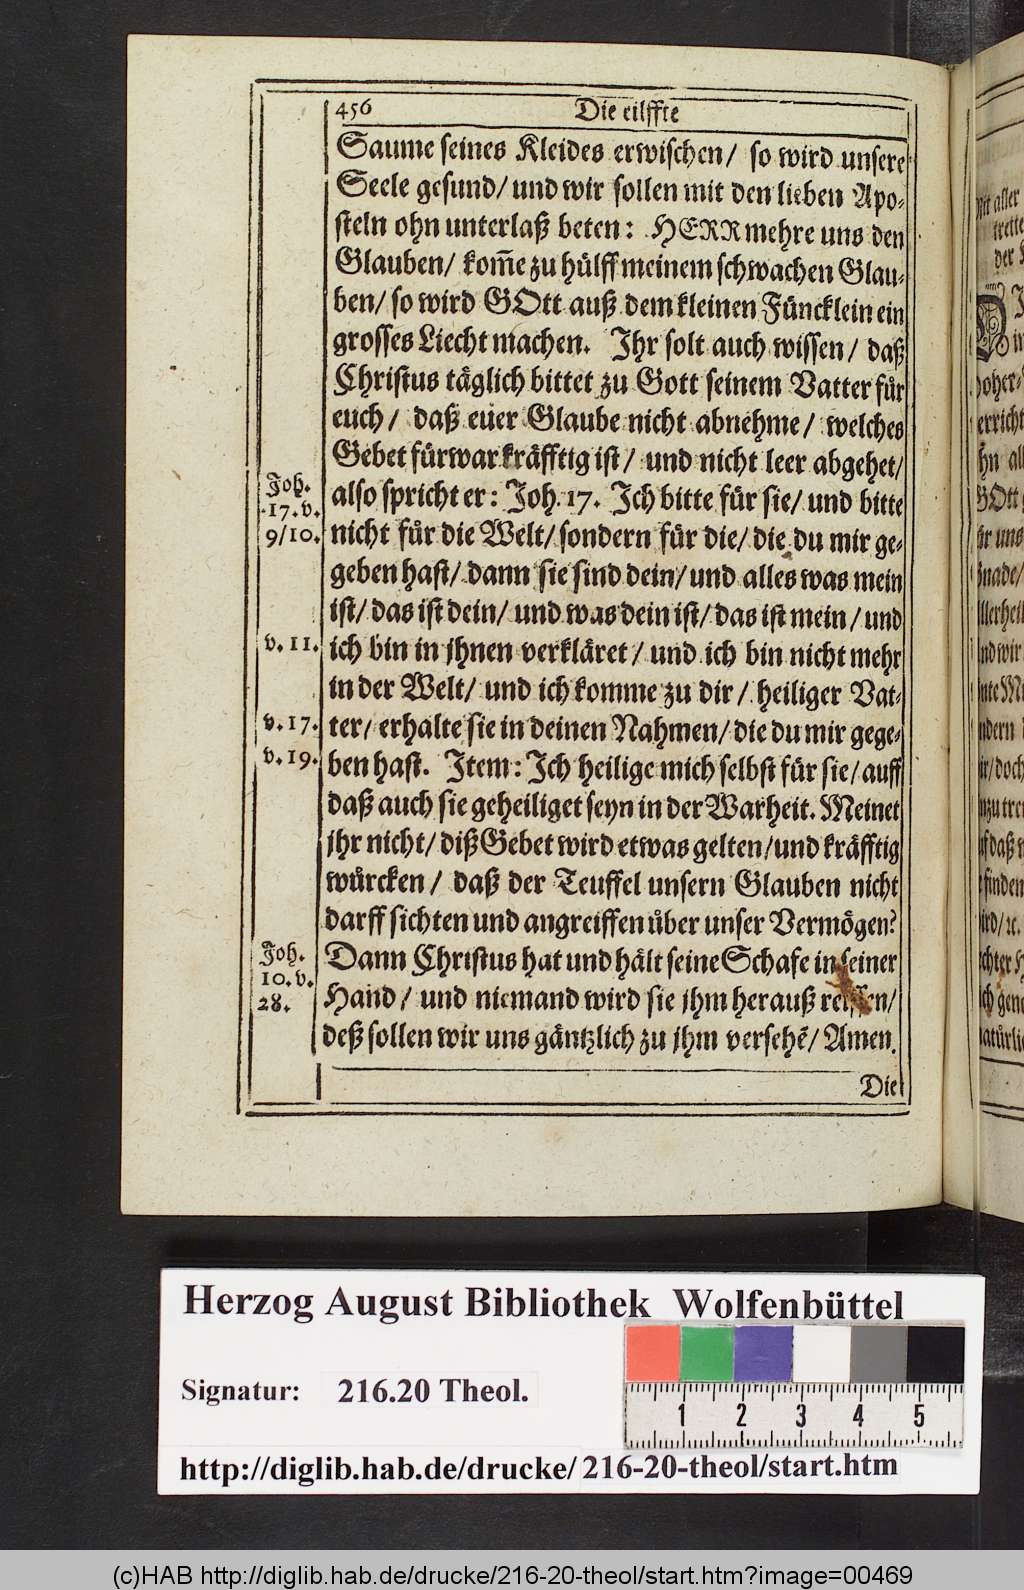 456 Die eilffte
Saume seines Kleides erwischen/ so wird unsere
Seele gesund/ und wir sollen mit den lieben Apo-
steln ohn unterlaß beten: HERR mehre uns den
Glauben/ kom̃e zu hülff meinem schwachen Glau-
ben/ so wird GOtt auß dem kleinen Füncklein ein
grosses Liecht machen. Ihr solt auch wissen/ daß
Christus täglich bittet zu Gott seinem Vatter für
euch/ daß euer Glaube nicht abnehme/ welches
Gebet fürwar kräfftig ist/ und nicht leer abgehet/
also spricht er: Joh. 17. Ich bitte für sie/ und bitte
nicht für die Welt/ sondern für die/ die du mir ge-
geben hast/ dann sie sind dein/ und alles was mein
ist/ das ist dein/ und was dein ist/ das ist mein/ und
ich bin in jhnen verkläret/ und ich bin nicht mehr
in der Welt/ und ich komme zu dir/ heiliger Vat-
ter/ erhalte sie in deinen Nahmen/ die du mir gege-
ben hast. Item: Ich heilige mich selbst für sie/ auff
daß auch sie geheiliget seyn in der Warheit. Meinet
jhr nicht/ diß Gebet wird etwas gelten/ und kräfftig
würcken/ daß der Teuffel unsern Glauben nicht
darff sichten und angreiffen über unser Vermögen?
Dann Christus hat und hält seine Schafe in seiner
Hand/ und niemand wird sie jhm herauß reissen/
deß sollen wir uns gäntzlich zu jhm versehẽ/ Amen.
Die
Joh.
17. v.
9/10.
v. 11.
v. 17.
v. 19.
Joh.
10. v.
28.
Herzog August Bibliothek Wolfenbüttel
Signatur: 216.20 Theol.
1 2 3 4 5
http://diglib.hab.de/drucke/216-20-theol/start.htm
(c)HAB http://diglib.hab.de/drucke/216-20-theol/start.htm?image=00469